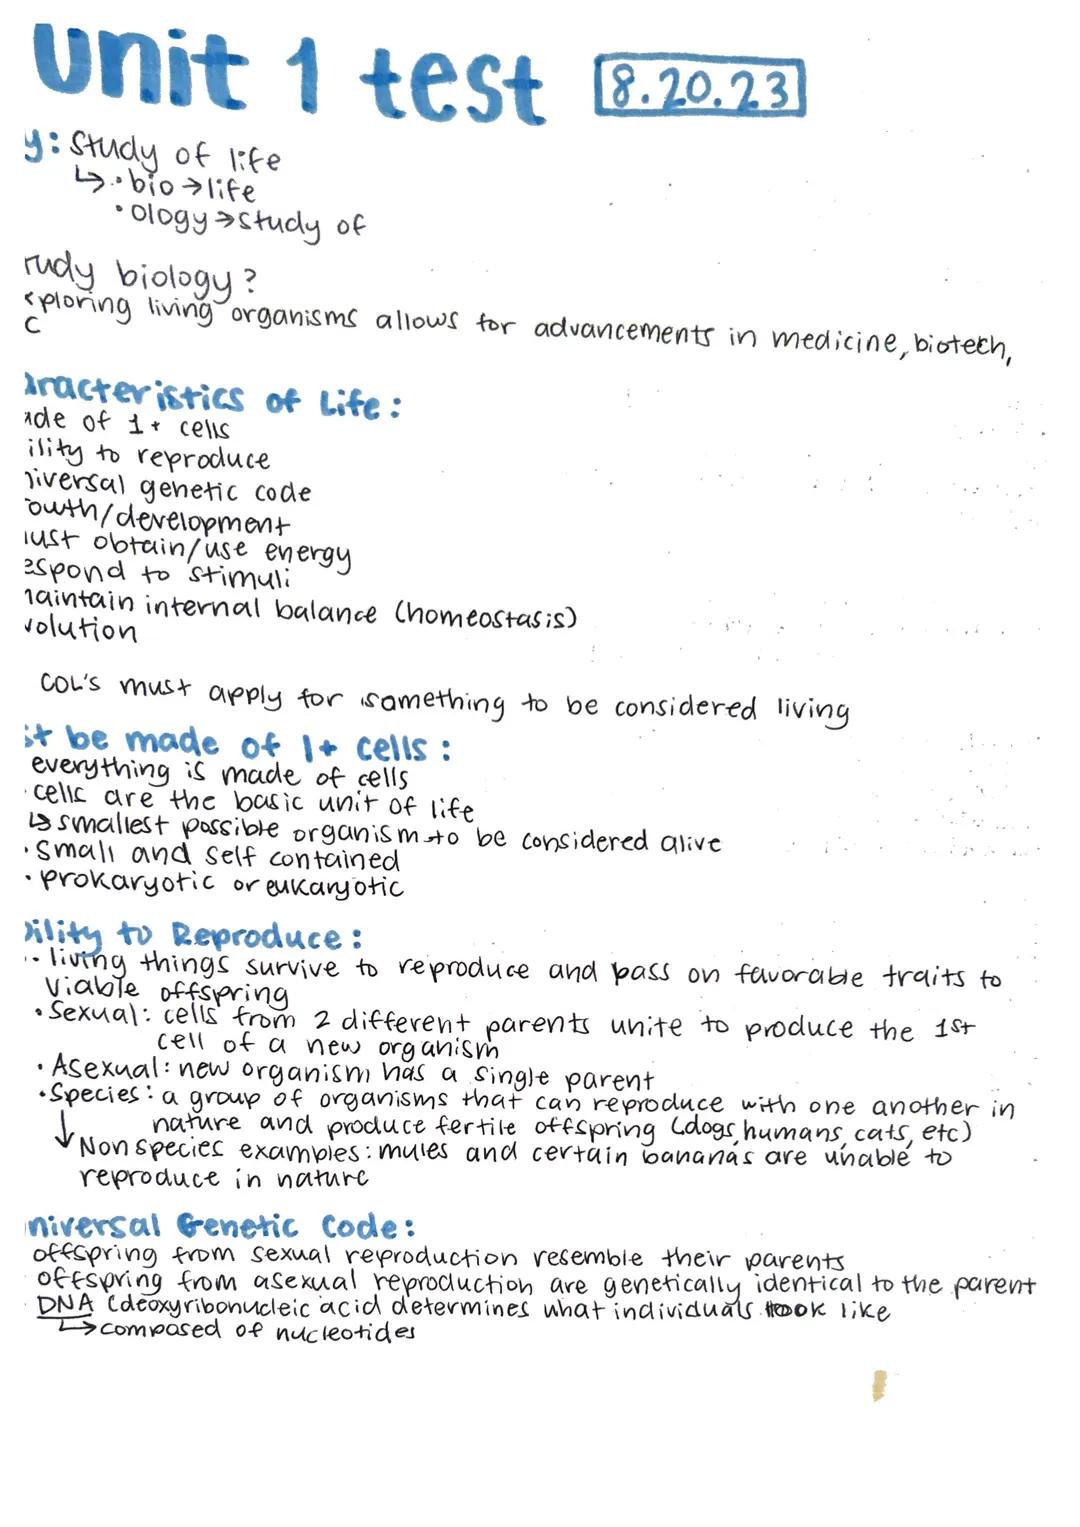 Unit 1 test 8.20.23
y: Study of life
↳ • bio → life
• ology → study of
rudy biology?
xploring living organisms allows for advancements in medicine, biotech,
C
aracteristics of Life:
ade of 1+ cells
ility to reproduce
niversal genetic code
owth/development
nust obtain/use energy
espond to stimuli
naintain internal balance (homeostasis)
volution
COL's must apply for something to be considered living
st be made of 1+ cells:
everything is made of cells
• cells are the basic unit of life
↳ smallest possible organism to be considered alive
• Small and self contained
• prokaryotic or eukaryotic
bility to Reproduce:
• living things survive to reproduce and pass on favorable traits to
viable offspring
• Sexual: cells from 2 different parents unite to produce the 1st
cell of a new organism
• Asexual: new organism has a single parent
• Species: a group of organisms that can reproduce with one another in
nature and produce fertile offspring (dogs, humans, cats, etc)
↓ Non species examples: mules and certain bananas are unable to
reproduce in nature
niversal Genetic Code:
offspring from sexual reproduction resemble their parents
offspring from asexual reproduction are genetically identical to the parent
DNA (deoxyribonucleic acid determines what individuals look like
↳ composed of nucleotides